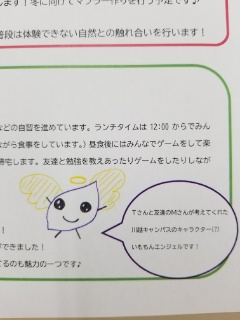 します！冬に向けてマフラー作りを行う予定です♪
普段は体験できない自然との触れ合いを行います！
などの自習を進めています。ランチタイムは 12:00 からでみん
ながら食事をしています。）昼食後にはみんなでゲームをして楽
帰宅します。友達と勉強を教えあったりゲームをしたりしなが
！
ができました！
てるのも魅力の一つです♪
Tさんと友達のMさんが考えてくれた
川越キャンパスのキャラクター(?)
いももんエンジェルです！